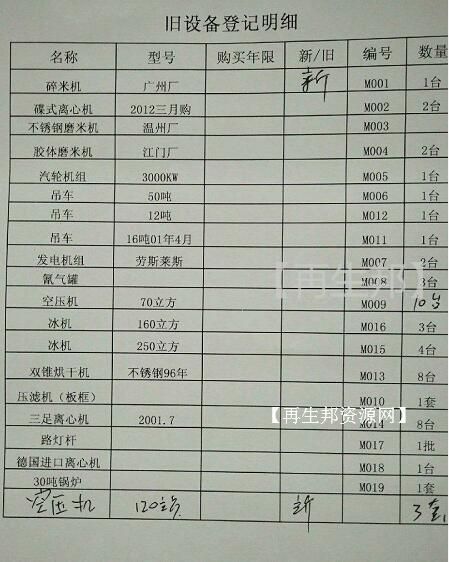 旧设备登记明细
名称 型号 购买年限 新/旧 编号 数量
碎米机 广州厂 新 M001 1台
碟式离心机 2012三月购 M002 2台
不锈钢磨米机 温州厂 M003
胶体磨米机 江门厂 M004 2台
汽轮机组 3000KW M005 1台
吊车 50吨 M006 1台
吊车 12吨 M012 1台
吊车 16吨01年4月 M011 1台
发电机组 劳斯莱斯 M007 2台
氰气罐 M008 3台
空压机 70立方 M009 10台
冰机 160立方 M016 3台
冰机 250立方 M015 4台
双锥烘干机 不锈钢96年 M013 8台
压滤机（板框） M010 1套
三足离心机 2001.7 M014 8台
路灯杆 M017 1批
德国进口离心机 M018 1台
30吨锅炉 M019 1套
空压机 120 新 3套
【再生邦】
【再生邦资源网】